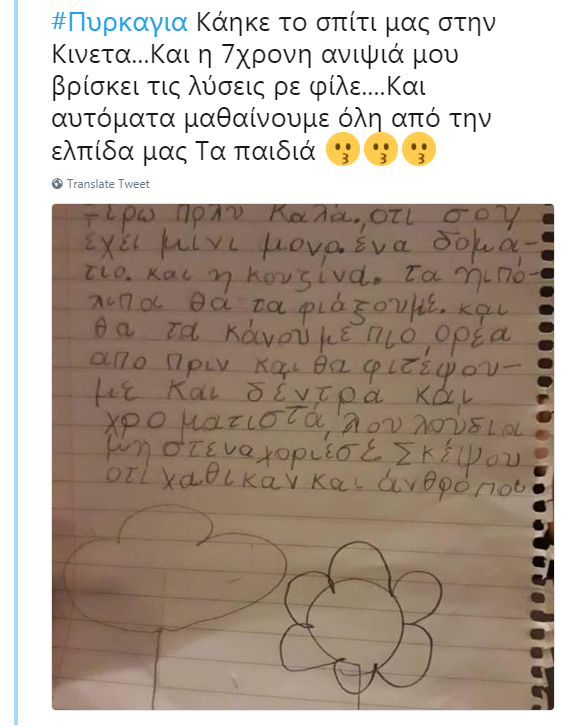 #Πυρκαγια Κάηκε το σπίτι μας στην
Κινετα...Και η 7χρονη ανιψιά μου
βρίσκει τις λύσεις ρε φίλε....Και
αυτόματα μαθαίνουμε όλη από την
ελπίδα μας Τα παιδιά 😗😗😗
Translate Tweet
ξέρω πολυ καλά. οτι σου
έχει μίνι μονο. ένα δομα-
τιο. και η κουζίνα. τα ηπό-
λιπα θα τα φιάξουμε. και
θα τα κάνουμε πιο ορέα
απο πριν και θα φιτέψου-
με και δέντρα και
χροματιστά λουλούδια
μη στεναχοριέσε. Σκέψου
οτι χαθικαν και άνθρόποι